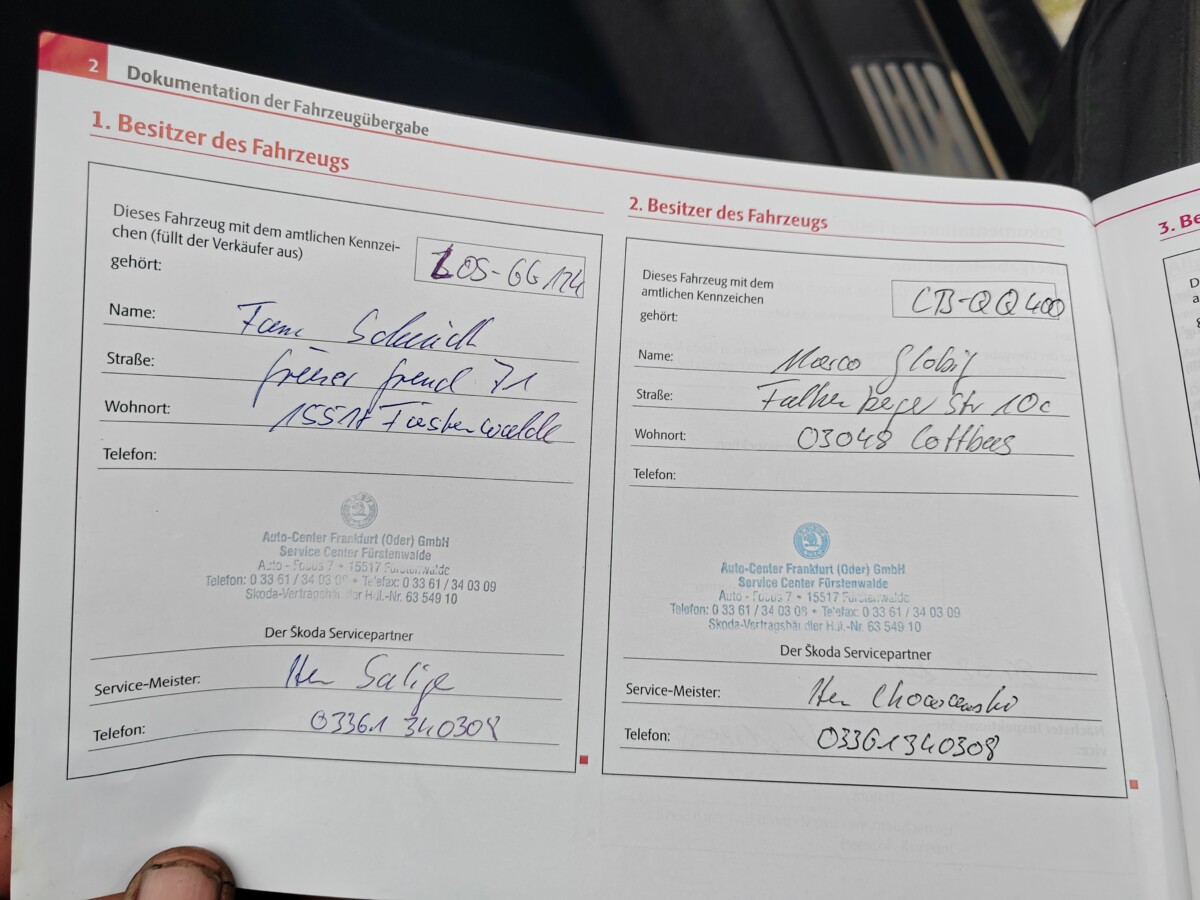 2
Dokumentation der Fahrzeugübergabe
1. Besitzer des Fahrzeugs
Dieses Fahrzeug mit dem amtlichen Kennzei-
chen (füllt der Verkäufer aus)
gehört:
LOS-GG 124
Name:
Straße: 71
Wohnort: 15517 Fürstenwalde
Telefon:
Auto-Center Frankfurt (Oder) GmbH
Service Center Fürstenwalde
Auto - Focus 7 • 15517 Fürstenwalde
Telefon: 0 33 61 / 34 03 08 • Telefax: 0 33 61 / 34 03 09
Skoda-Vertragshändler H.d.-Nr. 63 549 10
Der Škoda Servicepartner
Service-Meister: Herr
Telefon: 03361 340308
2. Besitzer des Fahrzeugs
Dieses Fahrzeug mit dem
amtlichen Kennzeichen
gehört:
CB-QQ 400
Name: Marco Globig
Straße: Str 10c
Wohnort: 03048 Cottbus
Telefon:
Auto-Center Frankfurt (Oder) GmbH
Service Center Fürstenwalde
Auto - Focus 7 • 15517 Fürstenwalde
Telefon: 0 33 61 / 34 03 08 • Telefax: 0 33 61 / 34 03 09
Skoda-Vertragshändler H.d.-Nr. 63 549 10
Der Škoda Servicepartner
Service-Meister: Herr
Telefon: 03361340308
3. Be